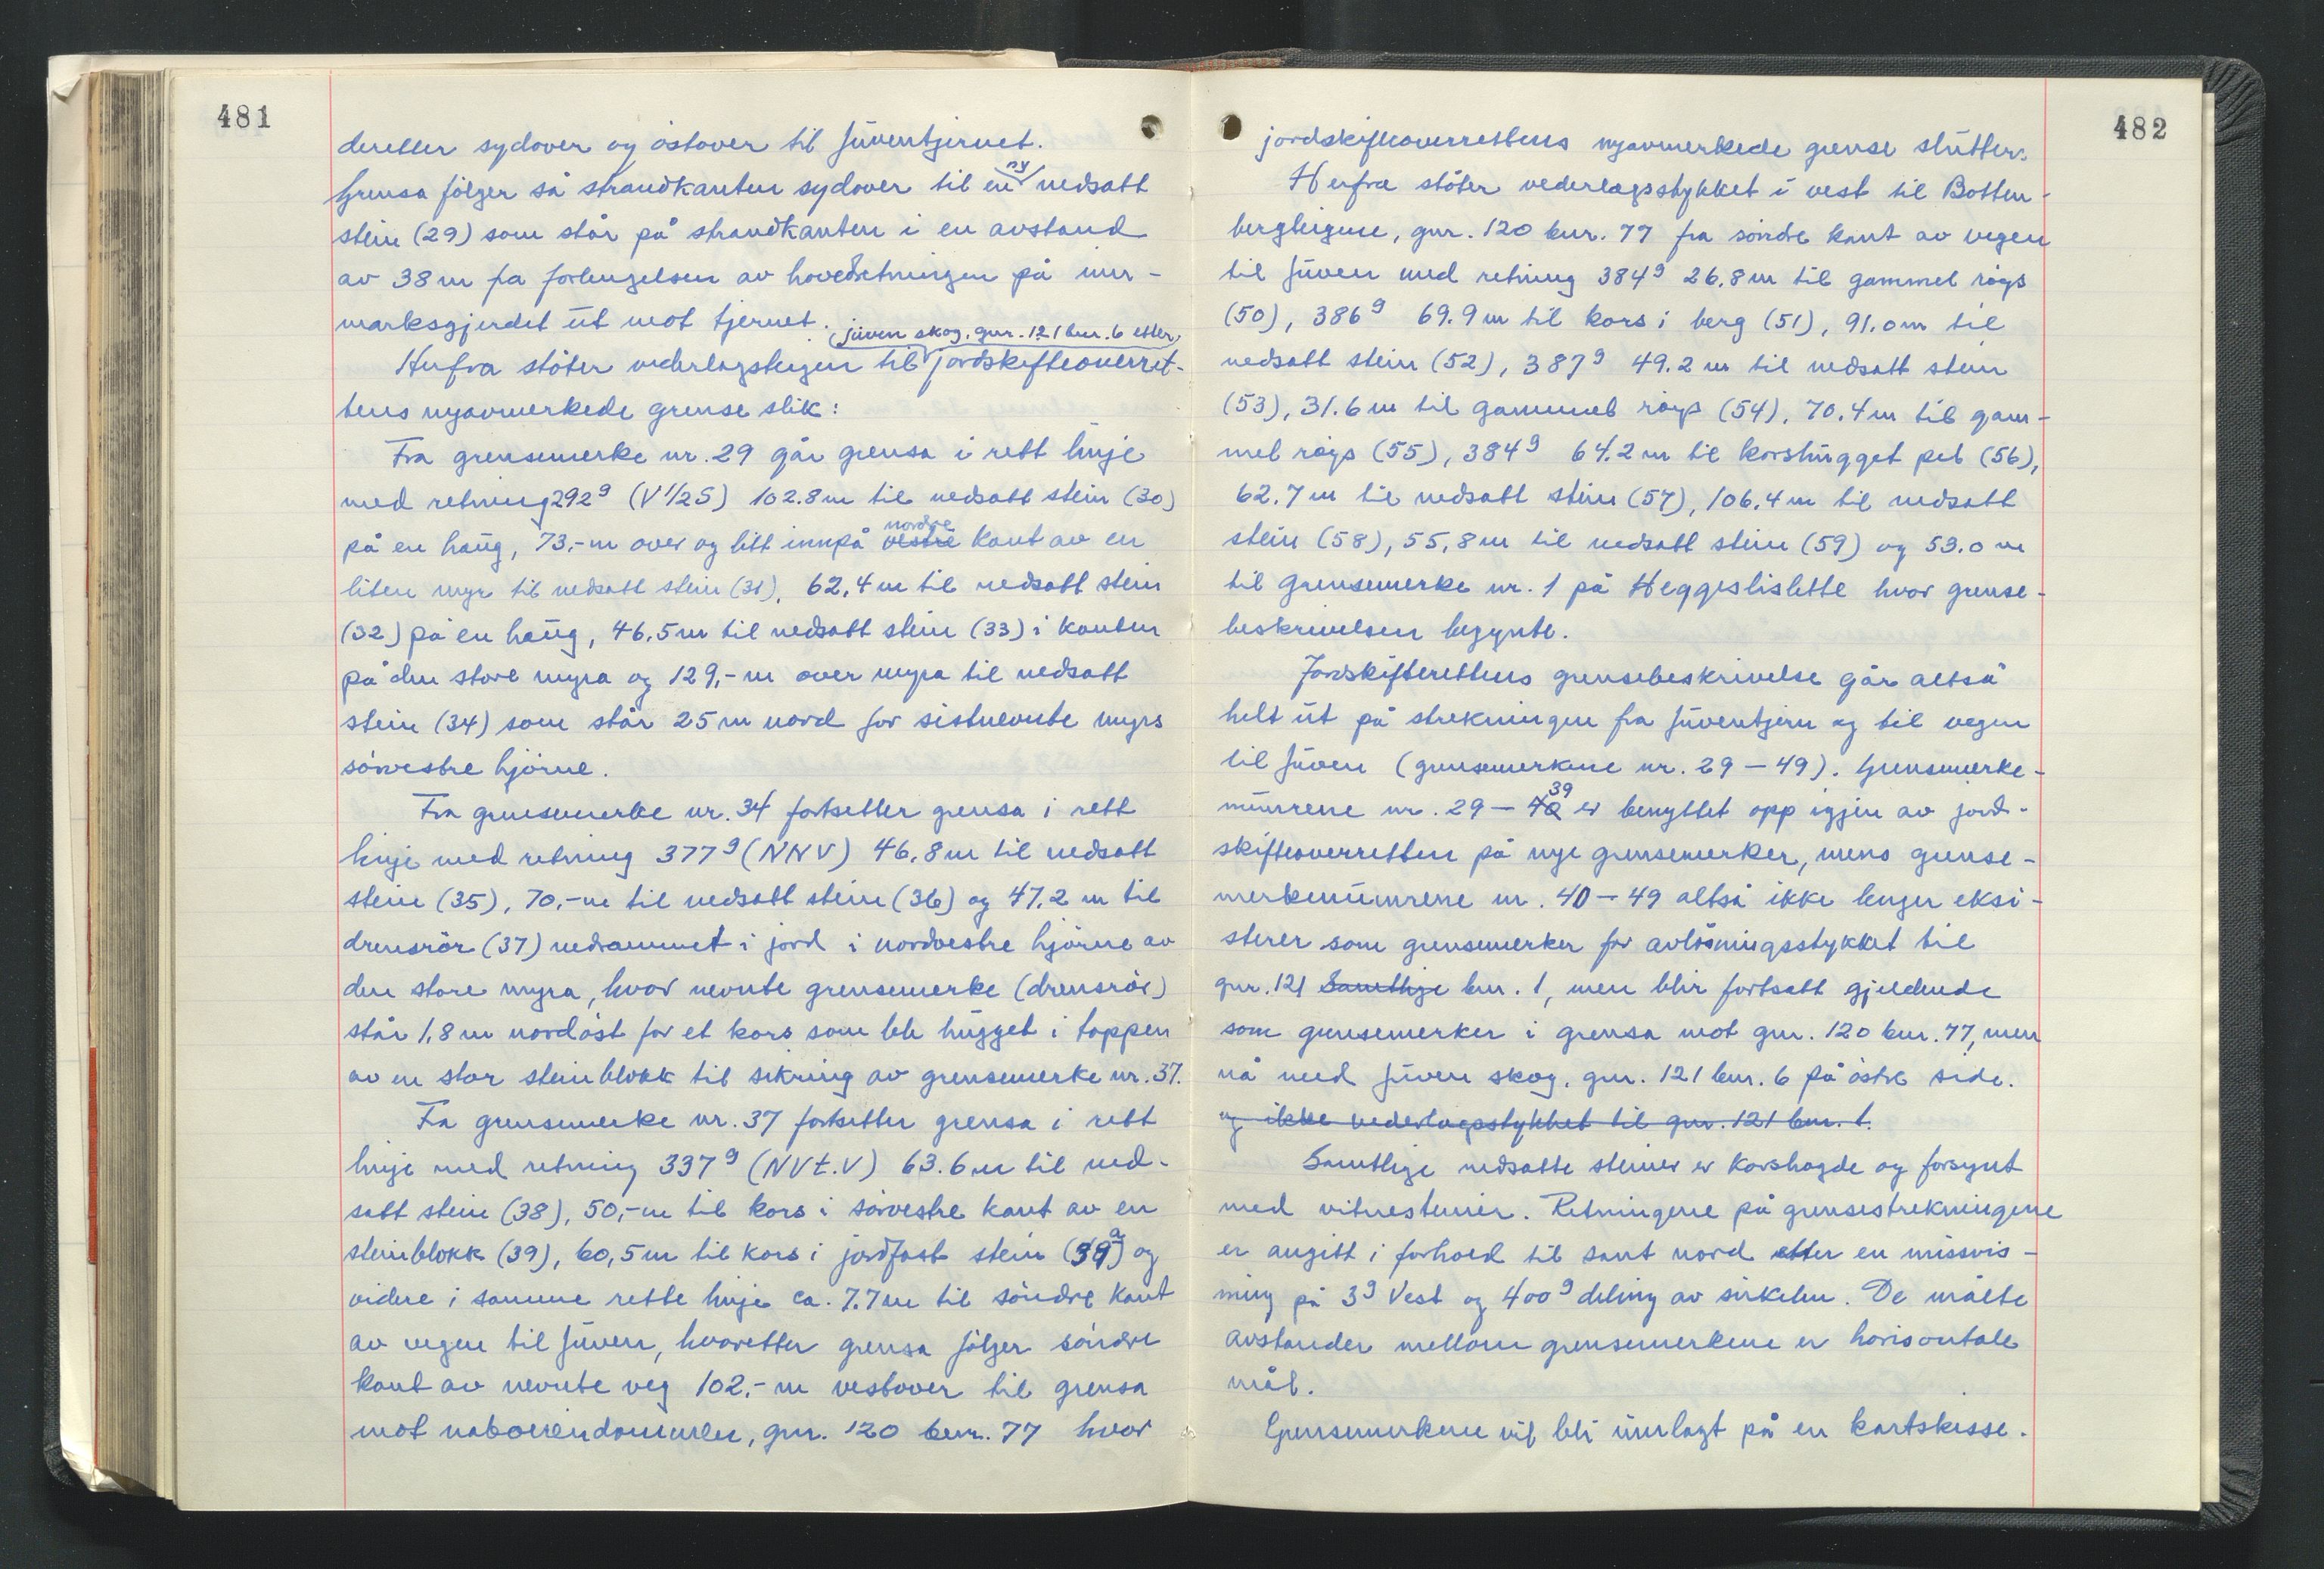 481
deretter sydover og östover til Juventjernet.
Grensa fölger så strandkanten sydover til en ny nedsatt
stein (29) som står på strandkanten i en avstand
av 38 m fra forlengelsen av hovedretningen på inn-
marksgjerdet ut mot tjernet.
Herfra stöter vederlagsteigen til Juven skog, gnr. 121 bnr. 6 etter jordskifteoverret-
tens nyavmerkede grense slik:
Fra grensemerke nr. 29 går grensa i rett linje
med retning 292g (V 1/2 S) 102.8 m til nedsatt stein (30)
på en haug, 73,- m over og litt innpå vestre nordre kant av en
liten myr til nedsatt stein (31), 62,4 m til nedsatt stein
(32) på en haug, 46,5 m til nedsatt stein (33) i kanten
på den store myra og 129,- m over myra til nedsatt
stein (34) som står 25 m nord for sistnevnte myrs
sörvestre hjörne.
Fra grensemerke nr. 34 fortsetter grensa i rett
linje med retning 377g (NNV) 46,8 m til nedsatt
stein (35), 70,- m til nedsatt stein (36) og 47,2 m til
drensrör (37) nedrammet i jord i nordvestre hjörne av
den store myra, hvor nevnte grensemerke (drensrör)
står 1,8 m nordöst for et kors som ble hugget i toppen
av en stor steinblokk til sikring av grensemerke nr. 37.
Fra grensemerke nr. 37 fortsetter grensa i rett
linje med retning 337g (NVt.V) 63.6 m til ned-
satt stein (38), 50,- m til kors i sörvestre kant av en
steinblokk (39), 60,5 m til kors i jordfast stein (39a) og
videre i samme rette linje ca. 7.7 m til söndre kant
av vegen til Juven, hvoretter grensa fölger söndre
kant av nevnte veg 102,- m vestover til grensa
mot naboeiendommen, gnr. 120 bnr. 77 hvor
482
jordskifteoverrettens nyavmerkede grense slutter.
Herfra stöter vederlagsstykket i vest til Botten-
bergteigene, gnr. 120 bnr. 77 fra söndre kant av vegen
til Juven med retning 384g 26.8 m til gammel röys
(50), 386g 69.9 m til kors i berg (51), 91.0 m til
nedsatt stein (52), 387g 49.2 m til nedsatt stein
(53), 31.6 m til gammel röys (54), 70.4 m til gam-
mel röys (55), 384g 64.2 m til korshugget pel (56),
62.7 m til nedsatt stein (57), 106.4 m til nedsatt
stein (58), 55,8 m til nedsatt stein (59) og 53.0 m
til grensemerke nr. 1 på Heggeslislette hvor grense-
beskrivelsen begynte.
Jordskifterettens grensebeskrivelse går altså
helt ut på strekningen fra Juventjern og til vegen
til Juven (grensemerkene nr. 29 – 49). Grensemerke-
numrene nr. 29 – 40 39 er benyttet opp igjen av jord-
skifteoverretten på nye grensemerker, mens grense-
merkenumrene nr. 40 – 49 altså ikke lenger eksi-
sterer som grensemerker for avlösningsstykket til
gnr. 121 Samtlige bnr. 1, men blir fortsatt gjeldende
som grensemerker i grensa mot gnr. 120 bnr. 77, men
nå med Juven skog, gnr. 121 bnr. 6 på östre side.
og ikke vederlagsstykket til gnr. 121 bnr. 1.
Samtlige nedsatte steiner er korshogde og forsynt
med vitnesteiner. Retningene på grensestrekningene
er angitt i forhold til sant nord etter en missvis-
ning på 3g Vest og 400g deling av sirkelen. De målte
avstander mellom grensemerkene er horisontale
mål.
Grensemerkene vil bli innlagt på en kartskisse.